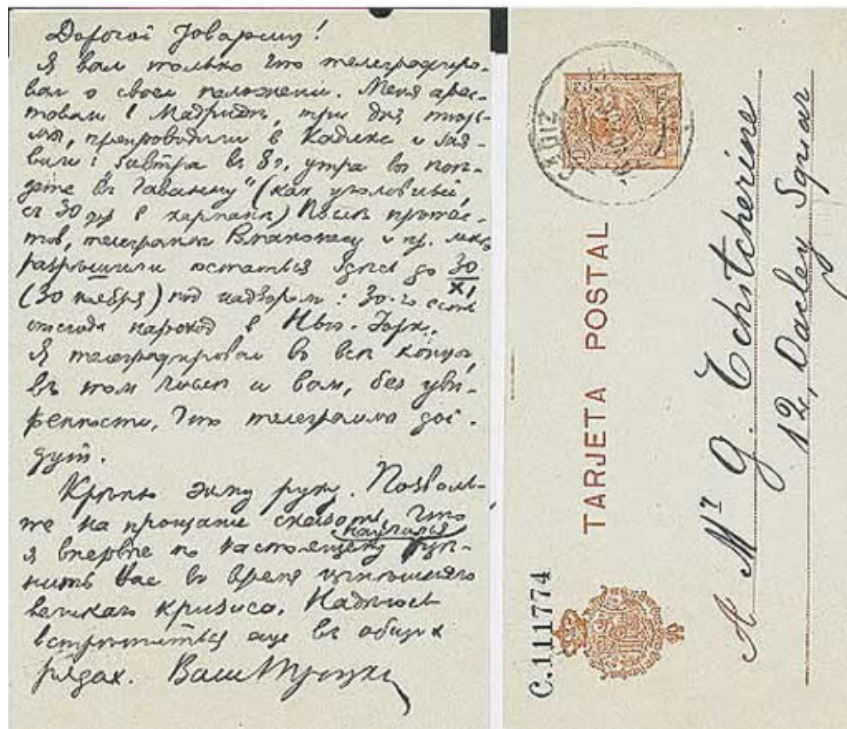 Дорогой Товарищ!
Я вам только что телеграфиро-
вал о своем положении. Меня арес-
товали в Мадриде, три дня тюрь-
мы, препроводили в Кадикс и зая-
вили: завтра въ 8 ч. утра вы
въ Гаванну" (как уголовный,
съ 30 в кармане) После протес-
тов, телеграмм и пр. мне
разрешили остаться здесь до 30
XI
(30 ноября) под надзором: 30-го есть
отсюда пароход в Нью-Йорк.
Я телеграфировал во все концы,
въ том числе и вам, без уве-
ренности, что телеграмма дой-
дут.
Крепко жму руку. Позволь-
те на прощание сказать, что
научился
я впервые по настоящему це-
нить Вас во время нынешнего
великаго кризиса. Надеюсь
встретиться еще въ общих
рядах. Ваш Троцкий
CADIZ
TARJETA POSTAL
C.111774
A Mr G. Tchitcherine
12, Oacley Squar